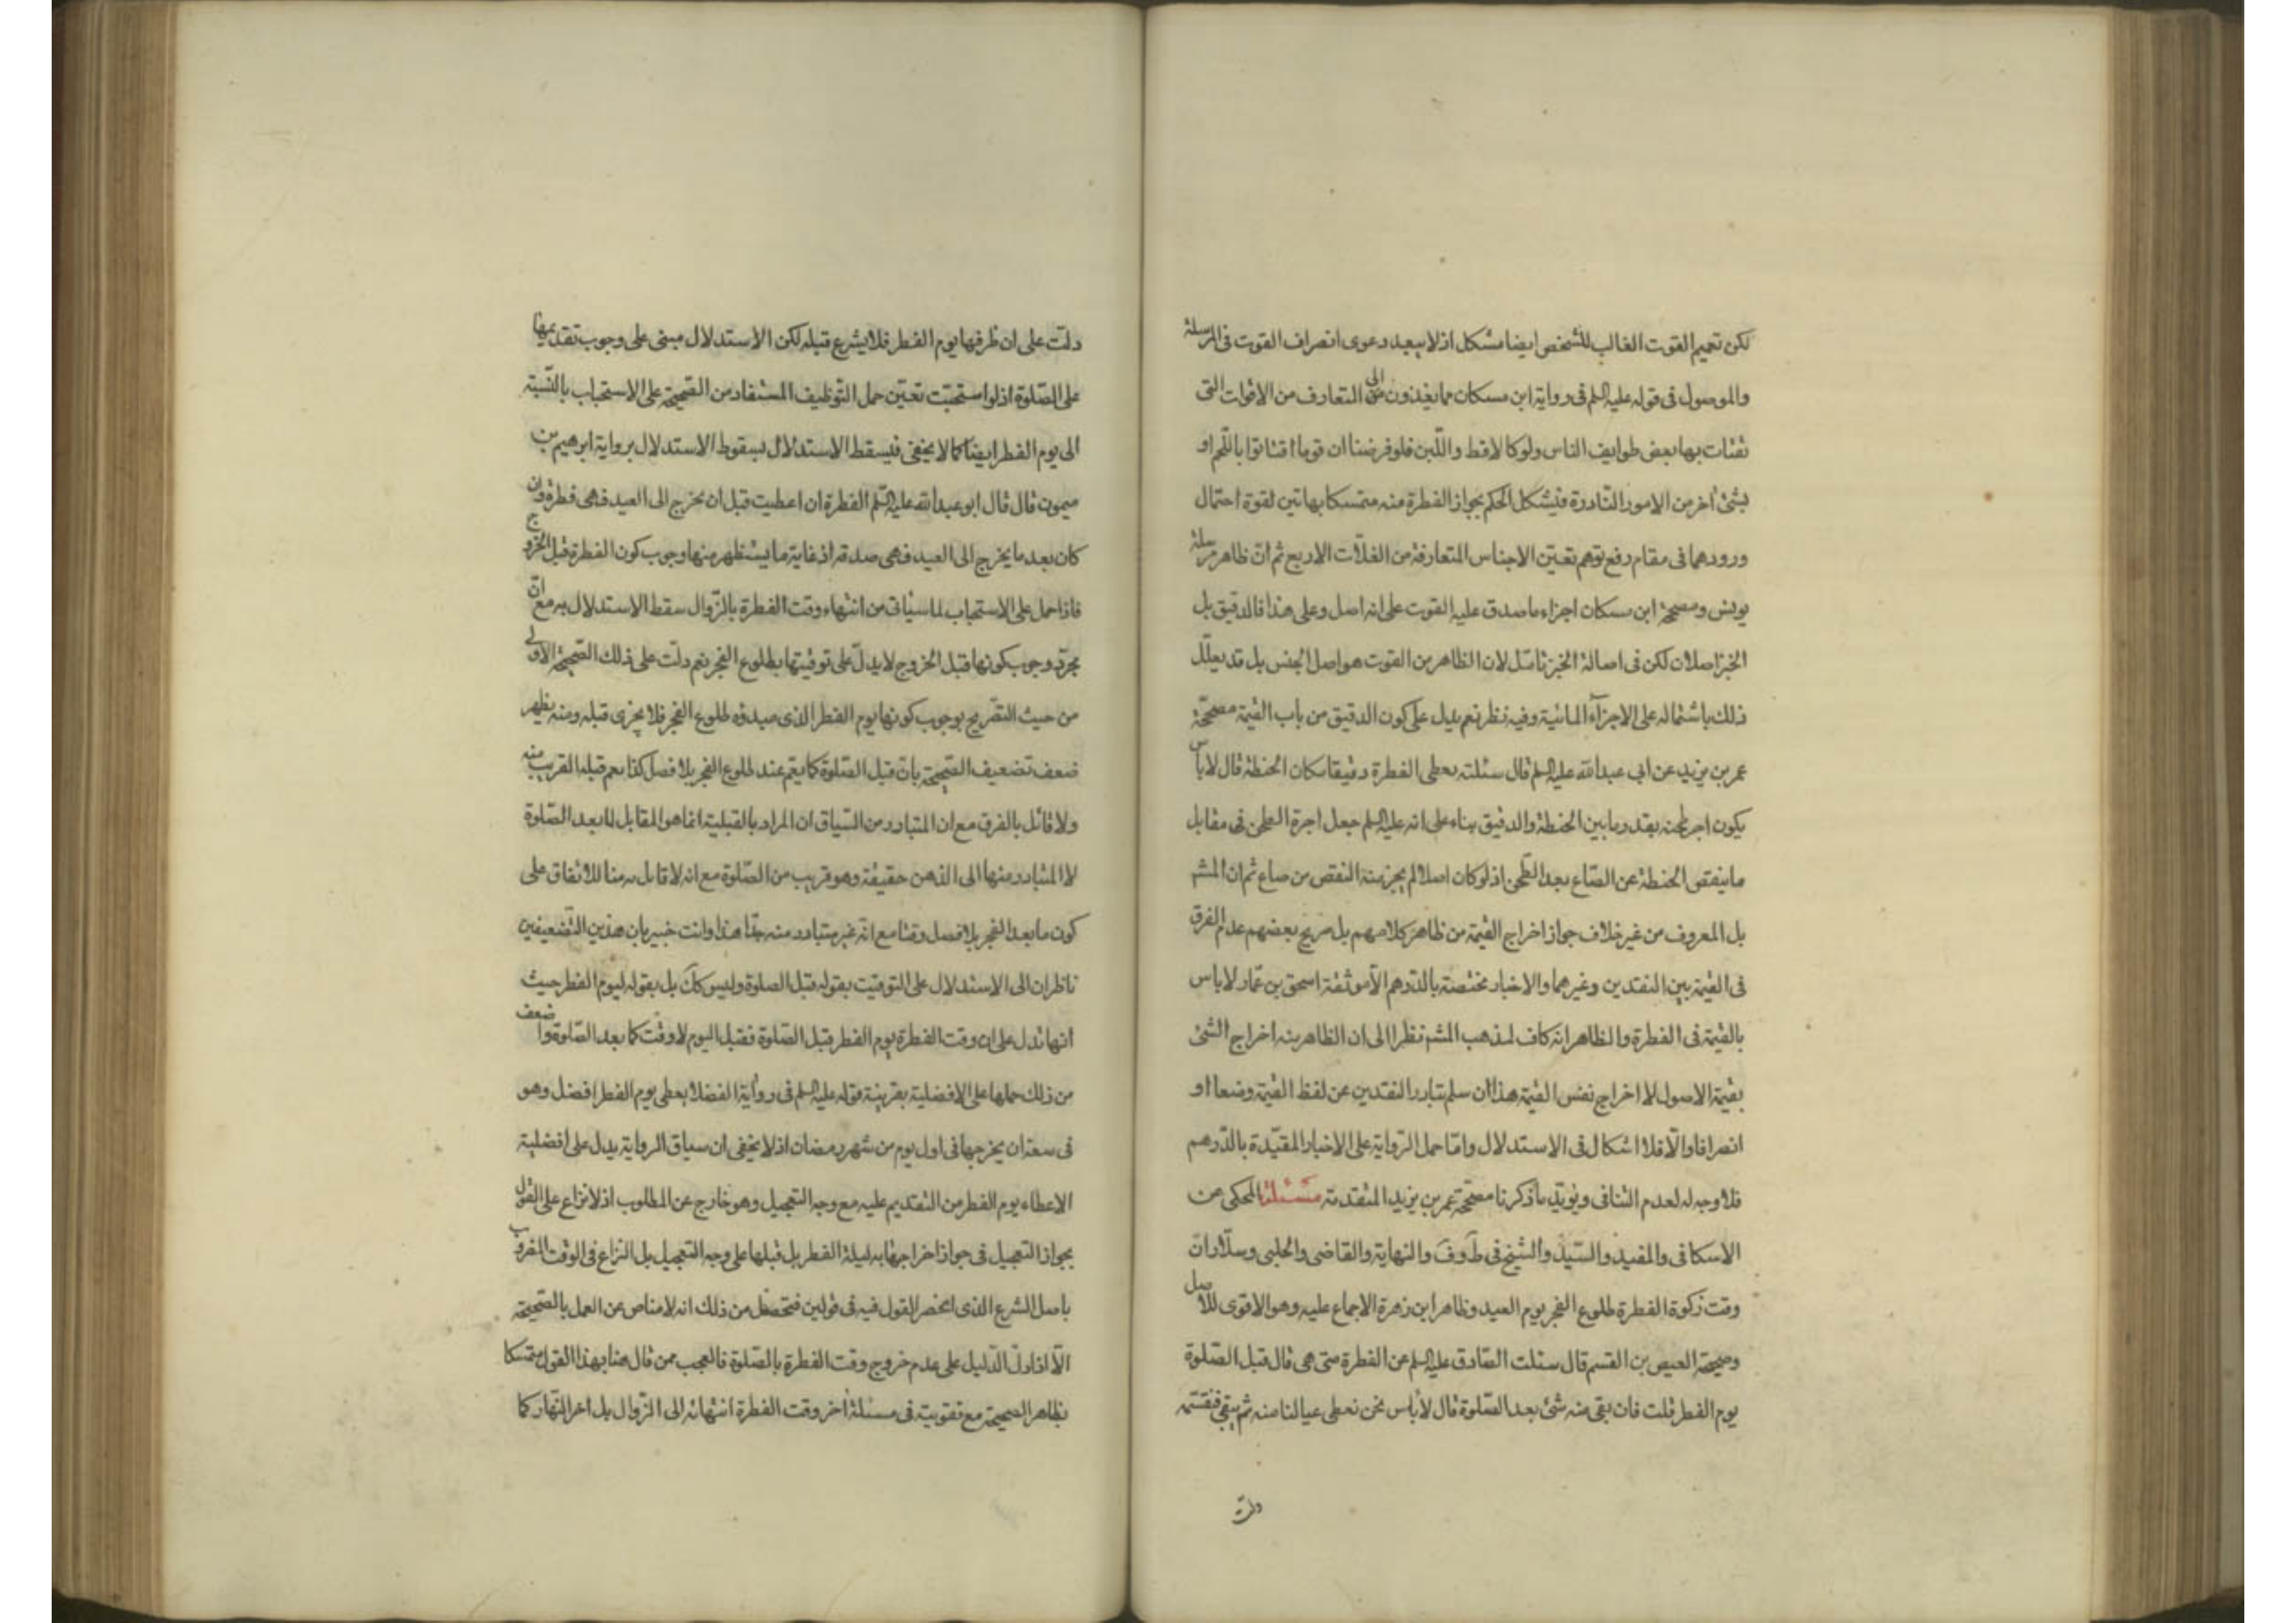 لكن تعميم القوت الغالب للشخص ايضا مشكل اذ لا يبعد دعوى انصراف القوت فى المرسلة
والموصول فى قوله عليه السلم فى رواية ابن مسكان مما يغذون الى المتعارف من الاقوات التى
تقتات بها بعض طوايف الناس ولو كالاقط واللبن فلو فرضنا ان قوما اقتاتوا باللحم او
بشئ آخر من الامور النادرة فيشكل الحكم بجواز الفطرة منه متمسكا بهاتين لقوة احتمال
ورودهما فى مقام رفع توهم تعين الاجناس المتعارفة من الغلات الاربع ثم ان ظاهر مرسلة
يونس ومصححة ابن مسكان اجزاء ما صدق عليه القوت على انه اصل وعلى هذا فالدقيق بل
الخبز اصلان لكن فى اصالة الخبز تامل لان الظاهر من القوت هو اصل الجنس بل قد يعلل
ذلك باشتماله على الاجزآء المائية وفيه نظر نعم يدل على كون الدقيق من باب القيمة مصححة
عمر بن يزيد عن ابي عبد الله عليه السلم قال سئلته يعطى الفطرة دقيقا مكان الحنطة قال لا باس
يكون اجر طحنه بقدر ما بين الحنطة والدقيق بناء على انه عليه السلم جعل اجرة الطحن فى مقابل
ما ينقص الحنطة عن الصاع بعد الطحن اذ لو كان اصلا لم يجز منه النقص من صاع ثم ان المشهـ
بل المعروف من غير خلاف جواز اخراج القيمة من ظاهر كلامهم بل صريح بعضهم عدم الفرق
فى القيمة بين النقدين وغيرهما والاخبار مختصة بالدرهم الا موثقة اسحق بن عمار لا باس
بالقيمة فى الفطرة والظاهر انه كاف لمذهب المشهـ نظرا الى ان الظاهر منه اخراج الشئ
بقيمة الاصول لا اخراج نفس القيمة هذا ان سلم تبادر النقدين عن لفظ القيمة وضعا او
انصرافا والا فلا اشكال فى الاستدلال واما حمل الرواية على الاخبار المقيدة بالدرهم
فلا وجه له لعدم التنافى ويؤيد ما ذكرنا مصححة عمر بن يزيد المتقدمة مسئلة المحكى عن
الاسكافى والمفيد والسيد والشيخ فى ط وف والنهاية والقاضى والحلبى وسلار ان
وقت زكوة الفطرة طلوع الفجر يوم العيد وظاهر ابن زهرة الاجماع عليه وهو الاقوى للاصل
وصحيحة العيص بن القسم قال سئلت الصادق عليه السلم عن الفطرة متى هى قال قبل الصلوة
يوم الفطر قلت فان بقى منه شئ بعد الصلوة قال لا باس نحن نعطى عيالنا منه ثم يبقى فنقسمه
دلت
دلت على ان ظرفها يوم الفطر فلا يشرع قبله لكن الاستدلال مبنى على وجوب تقديمها
على الصلوة اذ لو استحبت تعين حمل التوظيف المستفاد من الصحيحة على الاستحباب بالنسبة
الى يوم الفطر ايضا كما لا يخفى فيسقط الاستدلال بسقوط الاستدلال برواية ابرهيم بن
ميمون قال قال ابو عبد الله عليه السلم الفطرة ان اعطيت قبل ان يخرج الى العيد فهى فطرة وان
كان بعد ما يخرج الى العيد فهى صدقة اذ غاية ما يستظهر منها وجوب كون الفطرة قبل الخروج
فاذا حمل على الاستحباب لما سياتى من انتهاء وقت الفطرة بالزوال سقط الاستدلال به مع ان
مجرد وجوب كونها قبل الخروج لا يدل على توقيتها بطلوع الفجر نعم دلت على ذلك الصحيحة الاولى
من حيث التصريح بوجوب كونها يوم الفطر الذى مبدؤه طلوع الفجر فلا يجزى قبله ومنه يظهر
ضعف تضعيف الصحيحة بان قبل الصلوة كما يعم عند طلوع الفجر بلا فصل كذا يعم قبله القريب منه
ولا قائل بالفرق مع ان المتبادر من السياق ان المراد بالقبلية انما هو المقابل لما بعد الصلوة
لا المتبادر منها الى الذهن حقيقة وهو قريب من الصلوة مع انه لا قابل به هنا للاتفاق على
كون ما بعد الفجر بلا فصل وقتا مع انه غير متبادر منه جدا هذا وانت خبير بان هذين التضعيفين
ناظران الى الاستدلال على التوقيت بقوله قبل الصلوة وليس كك بل بقوله ليوم الفطر حيث
انها تدل على ان وقت الفطرة يوم الفطر قبل الصلوة فقبل اليوم لا وقت كما بعد الصلوة واضعف
من ذلك حملها على الافضلية بقرينة قوله عليه السلم فى رواية الفضلا يعطى يوم الفطر افضل وهو
فى سعة ان يخرجها فى اول يوم من شهر رمضان اذ لا يخفى ان سياق الرواية يدل على افضلية
الاعطاء يوم الفطر من التقديم عليه مع وجه التعجيل وهو خارج عن المطلوب اذ لا نزاع على القول
بجواز التعجيل فى جواز اخراجها به ليلة الفطر بل قبلها على وجه التعجيل بل النزاع فى الوقت المضروب
باصل الشرع الذى انحصر القول فيه فى قولين فتحصل من ذلك انه لا مناص عن العمل بالصحيحة
الا اذا دل الدليل على عدم خروج وقت الفطرة بالصلوة فالعجب ممن قال هنا بهذا القول متمسكا
بظاهر الصحيحة مع تقويته فى مسئلة آخر وقت الفطرة انتهائه الى الزوال بل اخر النهار كما